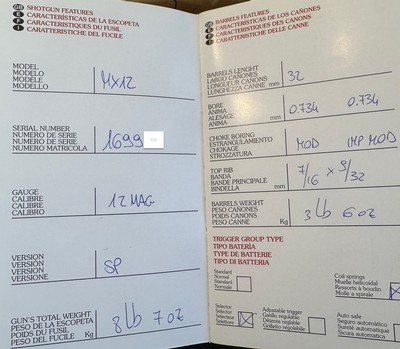 SHOTGUN FEATURES
CARACTERÍSTICAS DE LA ESCOPETA
CARACTERISTIQUES DU FUSIL
CARATTERISTICHE DEL FUCILE
MODEL
MODELO
MODELE
MODELLO
MX12
SERIAL NUMBER
NUMERO DE SERIE
NUMERO DE SERIE
NUMERO MATRICOLA
1699
GAUGE
CALIBRE
CALIBRE
CALIBRO
12 MAG
VERSION
VERSIÓN
VERSION
VERSIONE
SP
GUN'S TOTAL WEIGHT
PESO DE LA ESCOPETA
POIDS DU FUSIL
PESO DEL FUCILE Kg
8 lb 7 oz
BARRELS FEATURES
CARACTERÍSTICAS DE LOS CAÑONES
CARACTERISTIQUES DES CANONS
CARATTERISTICHE DELLE CANNE
BARRELS LENGHT
LARGO CAÑONES
LONGUEUR CANONS
LUNGHEZZA CANNE mm
32
BORE
ANIMA
ALESAGE
ANIMA mm
0.734 0.734
CHOKE BORING
ESTRANGULAMIENTO
CHOKAGE
STROZZATURA
MOD IMP MOD
TOP RIB
BANDA
BANDE PRINCIPALE
BINDELLA mm
7/16 x 9/32
BARRELS WEIGHT
PESO CAÑONES
POIDS CANONS
PESO CANNE Kg
3 lb 6 oz
TRIGGER GROUP TYPE
TIPO BATERÍA
TYPE DE BATTERIE
TIPO DI BATTERIA
Standard
Normal
Standard
Normale
Coil springs
Muelle helicoidal
Ressorts à boudin
Molle a spirale
Selector
Selector
Selecteur
Selettore
Adjustable trigger
Gatillo regulable
Détente réglable
Grilletto regolabile
Auto safe
Seguro automatico
Sureté automatique
Sicura automatica